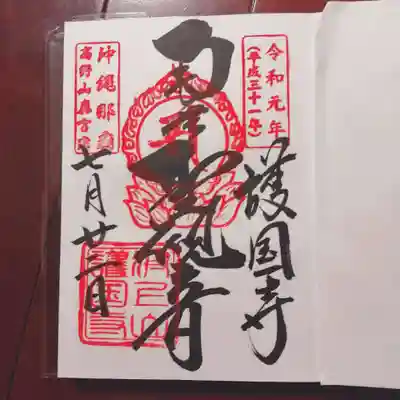 令和元年
(平成三十一年)
護国寺
聖観音
沖縄那覇
高野山真言宗
七月廿三日
護国寺